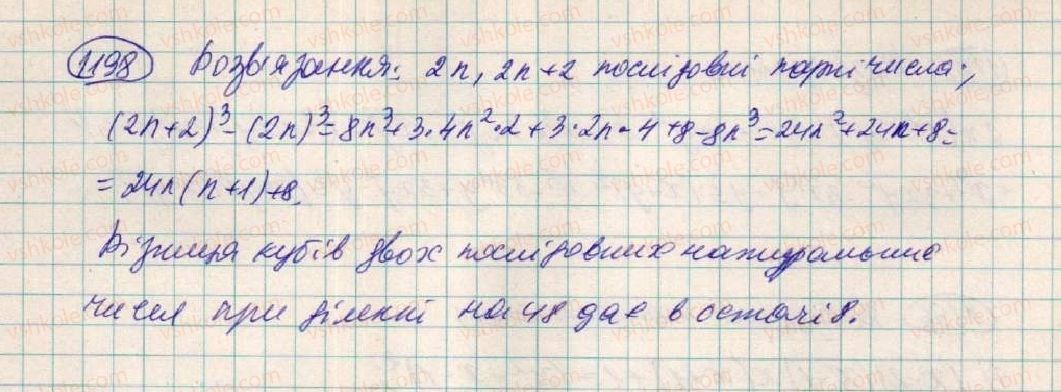 1198 Розв'язання: 2n, 2n+2 послідовні парні числа;
(2n+2)³-(2n)³=8n³+3·4n²·2+3·2n·4+8-8n³=24n²+24n+8=
=24n(n+1)+8.
Різниця кубів двох послідовних натуральних
чисел при діленні на 48 дає в остачі 8.